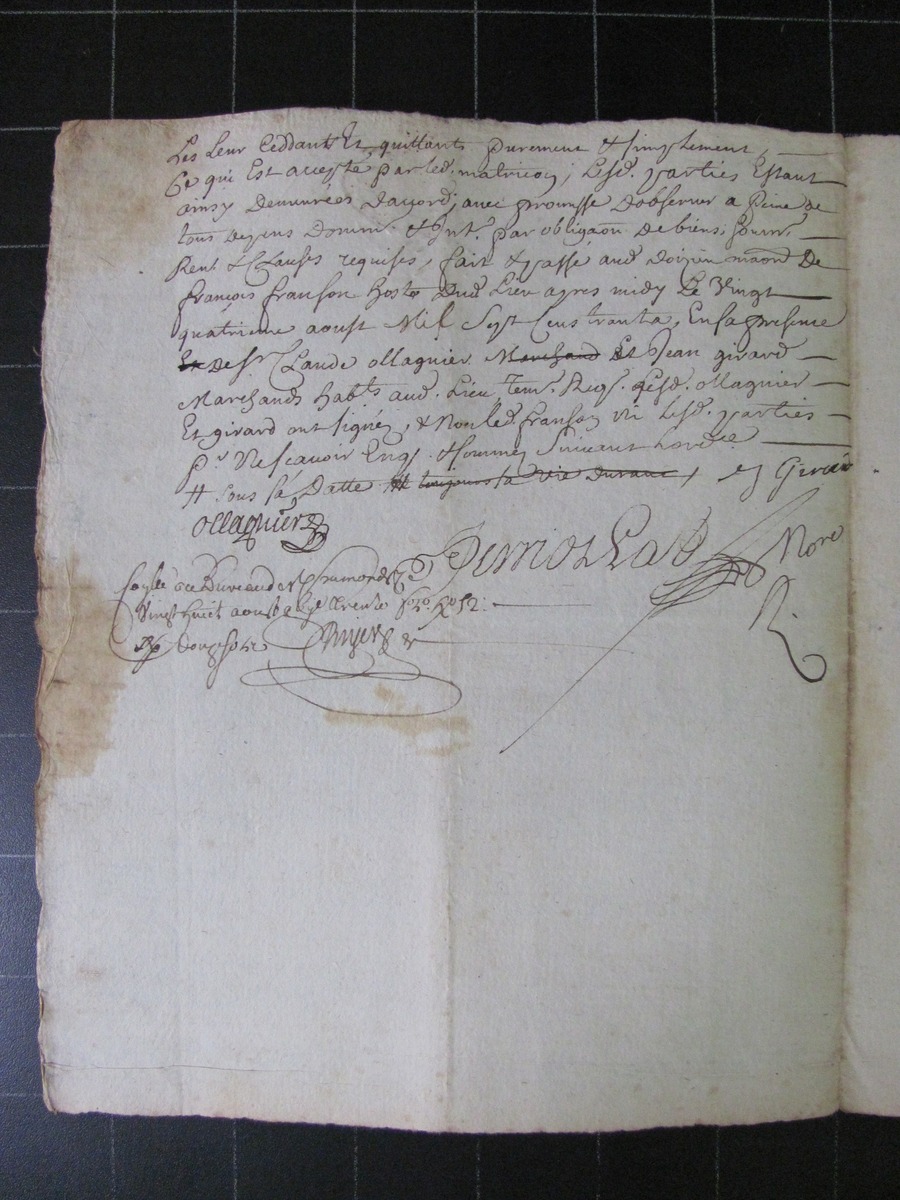 Les Leur Ceddants Et quittants purement & simplement,
Ce qui Est accepté par led. matricon, Lesd. parties Estant
ainsy Demeurées dacord; avec promesse Dobserver a Peine de
tous depens Domm. & Int. par obligaon De biens, soumi,
Rent. & Clauses requises, fait & passé aud. maon De
françois franson hoste Dud Lieu apres midy Le Vingt
quatrieme aoust Mil Sept Cens trante, En la presence
Et De Sr. Claude ollagnier Marchand Et Jean girard
Marchands habts aud. Lieu tem. Req. Lesd. ollagnier
Et girard ont signés, & Non led. franson ni Lesd. parties
pr. Ne scavoir Enq. & sommés Suivant Lordce
# sous sa Datte # toujours sa vie durant, J Girard
ollagnier
Nore
R.
vingt huit aoust trente fo. 52.
Rp douze sols